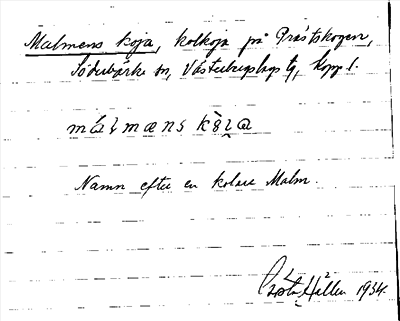 Malmens koja, kolkoja på Prästskogen,
Söderbärke sn, Västerbergslags tg, Kopp l.
målmæns kòja
Namn efter en kolare Malm.
Gösta Hallén 1934.